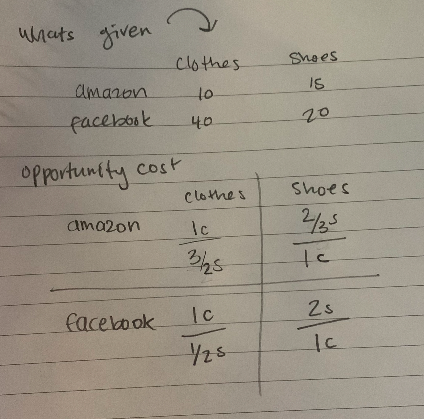 Whats given
Clothes Shoes
amazon 10 15
facebook 40 20
Opportunity cost
Clothes Shoes
amazon 1c/3/2s 2/3s/1c
facebook 1c/1/2s 2s/1c